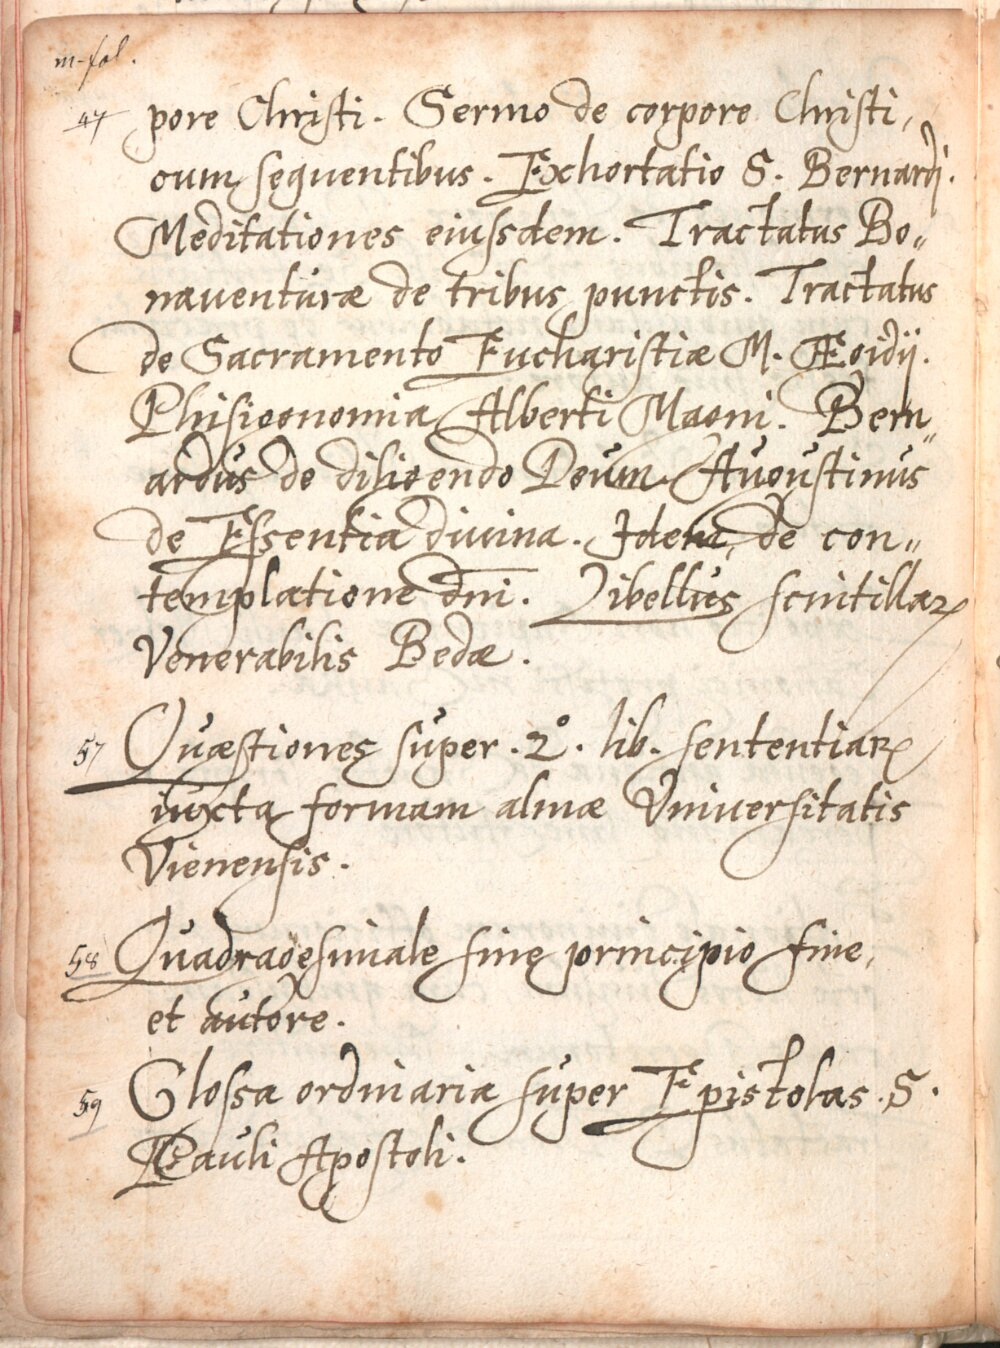 in-fol.
47 pore Christi. Sermo de corpore Christi,
cum sequentibus. Exhortatio S. Bernardi.
Meditationes eiussdem. Tractatus Bo„
nauenturæ de tribus punctis. Tractatus
de Sacramento Eucharistiæ M. Ægidij.
Phisiconomia Alberti Magni. Bern„
ardus de diligendo Deum. Augustinus
de Essentia diuina. Idem de con„
templatione dni. Libellus scintillaꝝ
Venerabilis Bedæ.
57 Quæstiones super .2°. lib. sententiaꝝ
iuxta formam almæ Vniuersitatis
Vienensis.
58 Quadragesimale sine principio fine,
et autore.
59 Glossa ordinaria super Epistolas .S.
Pauli Apostoli.